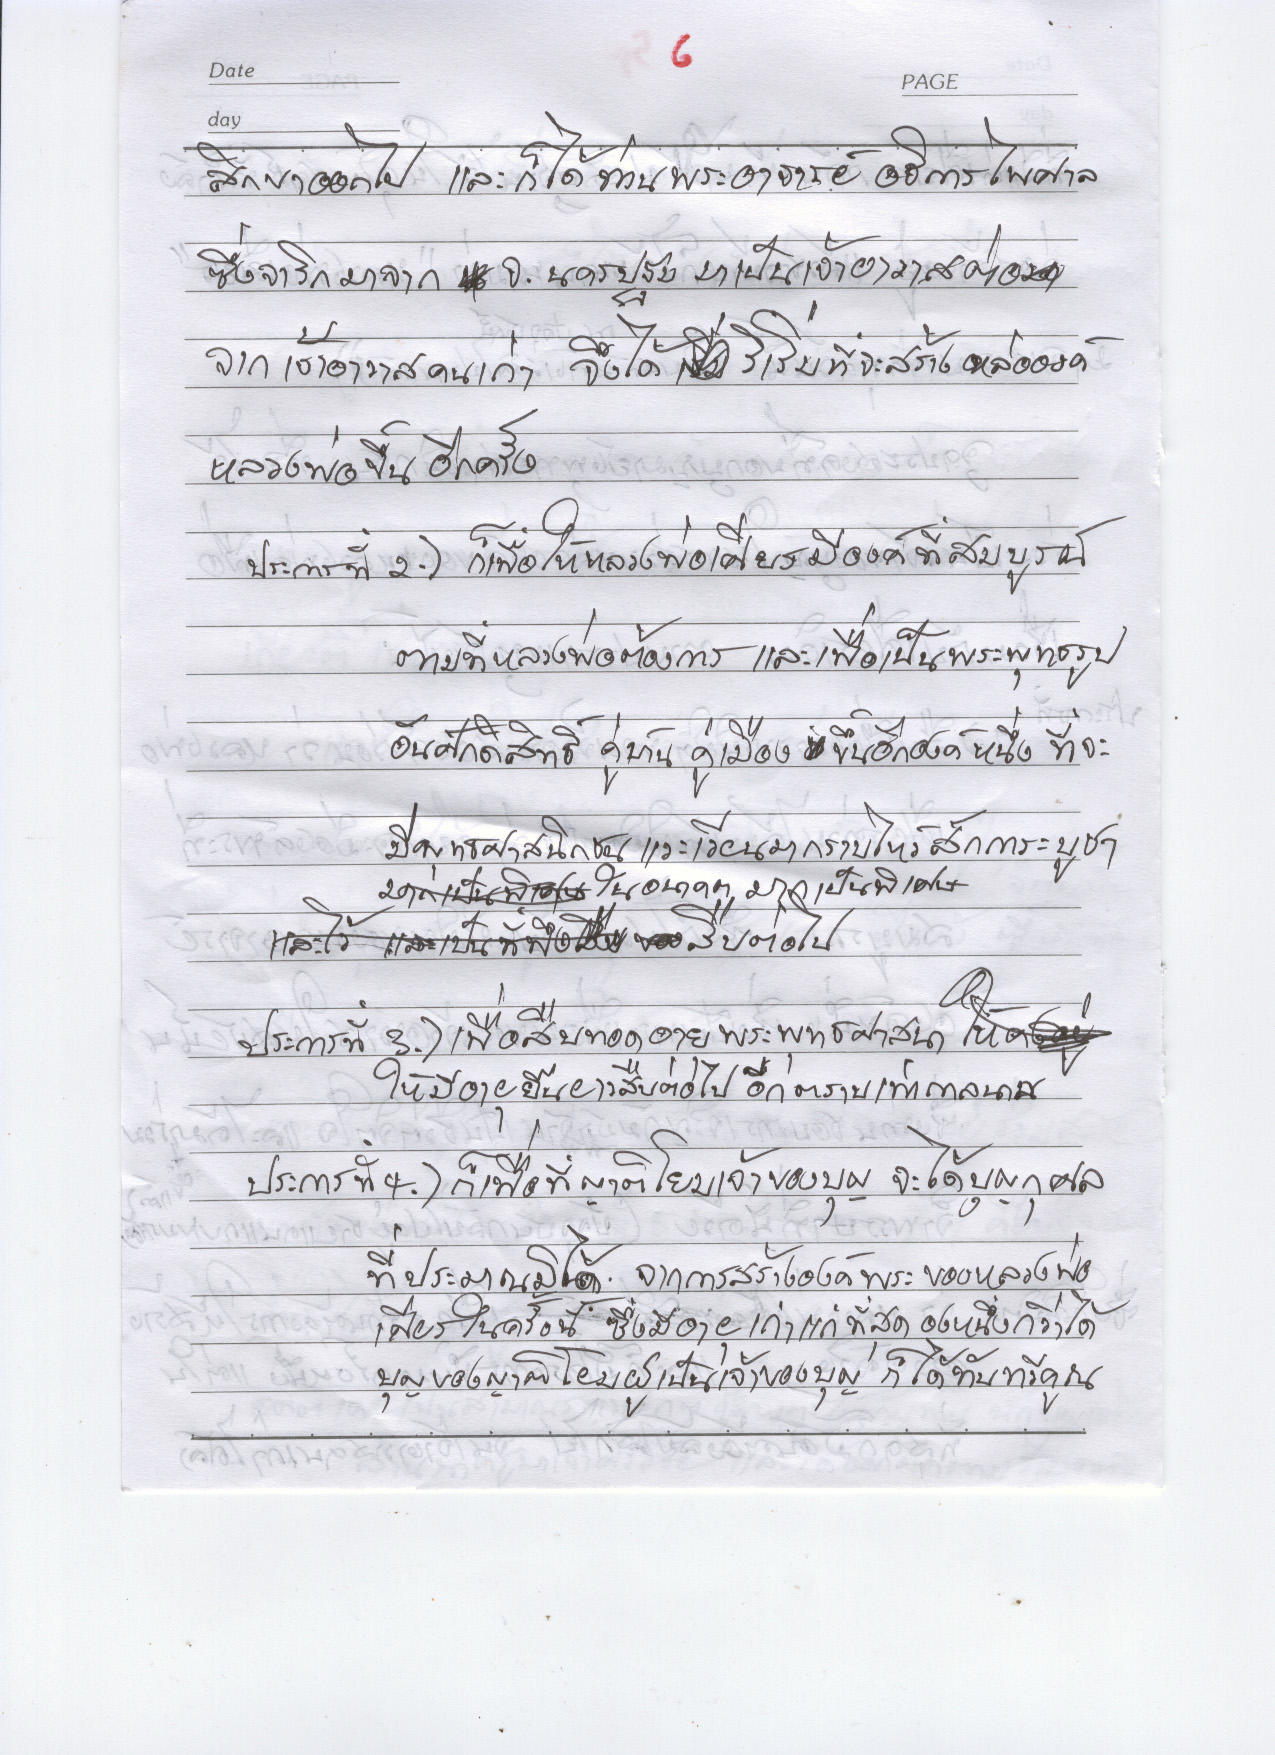 6
Date
PAGE
day
สึกขาออกไป และก็ได้ท่านพระอาจารย์ อธิการไพศาล
ซึ่งจาริกมาจาก จ. นครปฐม มาเป็นเจ้าอาวาสต่อ
จากเจ้าอาวาสคนเก่า จึงได้ ริเริ่มที่จะสร้างหล่อองค์
หลวงพ่อขึ้น อีกครั้ง
ประการที่ 2.) ก็เพื่อให้หลวงพ่อเศียรมีองค์ที่สมบูรณ์
ตามที่หลวงพ่อต้องการ และเพื่อเป็นพระพุทธรูป
อันศักดิ์สิทธิ์ คู่บ้าน คู่เมือง ขึ้นอีกองค์หนึ่ง ที่จะ
มีพุทธศาสนิกชน แวะเวียนมากราบไหว้สักการะบูชา
ในอนาคต มากเป็นพิเศษ
สืบต่อไป
ประการที่ 3.) เพื่อสืบทอดอายุพระพุทธศาสนา
ให้มีอายุยืนยาวสืบต่อไป อีกตราบเท่ากาลนาน
ประการที่ 4.) ก็เพื่อที่ญาติโยมเจ้าของบุญ จะได้บุญกุศล
ที่ประมาณมิได้. จากการสร้างองค์พระ ของหลวงพ่อ
เศียร ในครั้งนี้ ซึ่งมีอายุเก่าแก่ที่สุด องหนึ่งก็ว่าได้
บุญของญาติโยมผู้เป็นเจ้าของบุญ ก็ได้ทับทวีคูณ